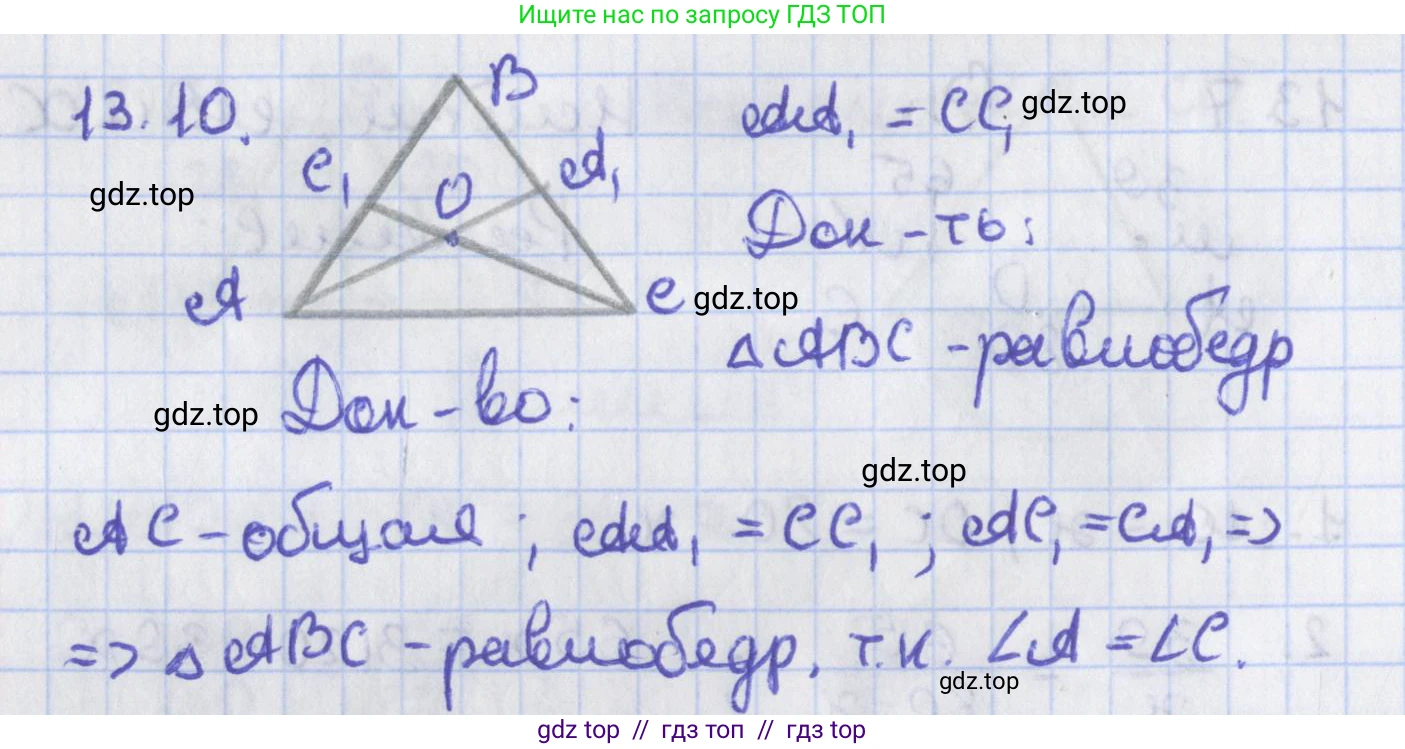 Ищите нас по запросу ГДЗ ТОП
13.10.
B
C₁
O
A₁
A
C
AA₁ = CC₁
gdz.top
gdz.top
Док-ть:
gdz.top
△ABC - равнобедр
gdz.top
Док-во:
gdz.top
AC - общая; AA₁ = CC₁; AC₁ = CA₁ =>
=> △ABC - равнобедр, т.к. ∠A = ∠C.
gdz.top
gdz top // гдз топ // гдз top